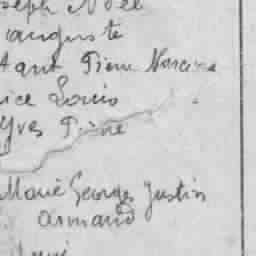 seph Noël
auguste
Pierre Narcisse
ice Louis
Yves Pierre
Marie Georges Justin
armand